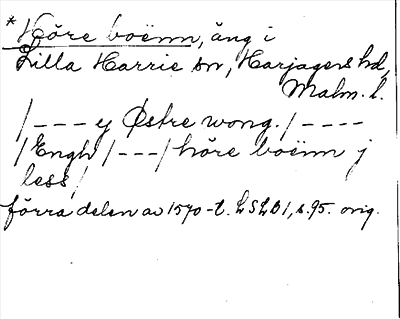 * Höre boënn, äng i
Lilla Harrie sn, Harjagers hd,
Malm. l.
/--- y Østre wong. /----
/Engh/---/ höre boënn j
less/
förra delen av 1570-t. LSLB1, s. 95. orig.